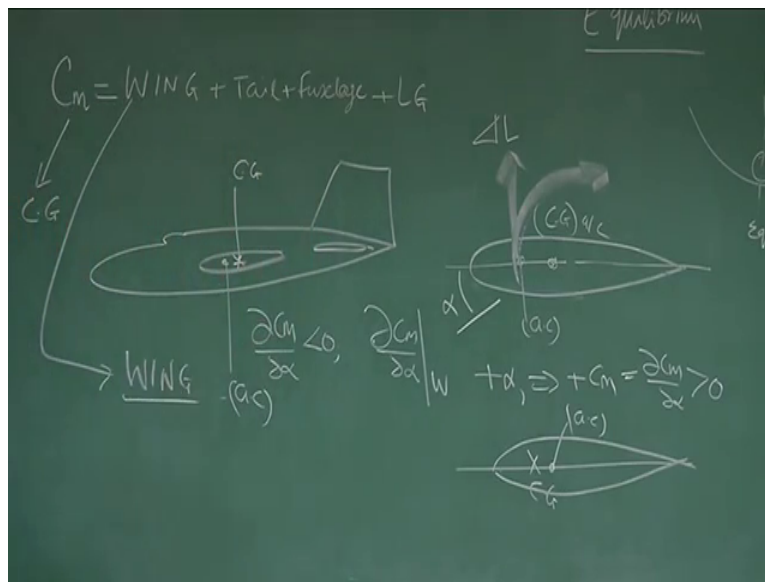 Equilibrium
Cm = WING + Tail + Fuselage + LG
C.G
CG
ΔL
(C.G) a/c
α
(a.c)
∂Cm/∂α < 0, ∂Cm/∂α |W + α, ⇒ + Cm = ∂Cm/∂α > 0
WING
(a.c)
(a.c)
X
CG